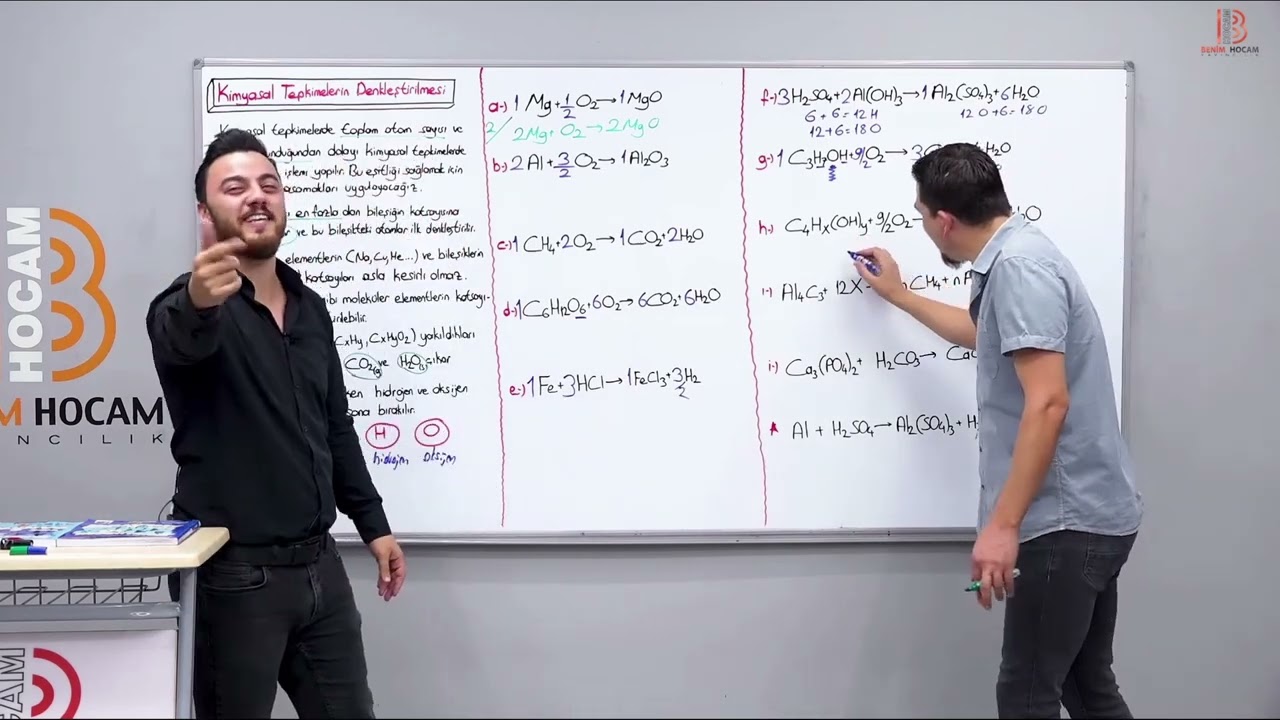 BENİM HOCAM
YAYINCILIK
Kimyasal Tepkimelerin Denkleştirilmesi
Kimyasal tepkimelerde toplam atom sayısı ve
nduğundan dolayı kimyasal tepkimelerde
işlemi yapılır. Bu eşitliği sağlamak için
basamakları uygulayacağız.
en fazla olan bileşiğin katsayısına
ve bu bileşikteki atomlar ilk denkleştirilir.
elementlerin (Na, Cu, He...) ve bileşiklerin
katsayıları asla kesirli olmaz.
ibi moleküler elementlerin katsayı-
CxHy, CxHyO2) yakıldıkları
CO2(g) ve H2O çıkar
ken hidrojen ve oksijen
sona bırakılır.
H O
hidrojen oksijen
a-) 1 Mg + 1/2 O2 → 1 MgO
2/ 2Mg + O2 → 2MgO
b-) 2 Al + 3/2 O2 → 1 Al2O3
c-) 1 CH4 + 2O2 → 1 CO2 + 2H2O
d-) 1 C6H12O6 + 6O2 → 6CO2 + 6H2O
e-) 1 Fe + 3HCl → 1 FeCl3 + 3/2 H2
f-) 3H2SO4 + 2Al(OH)3 → 1 Al2(SO4)3 + 6H2O
6 + 6 = 12 H
12 + 6 = 18 O
12 O + 6 = 18 O
g-) 1 C3H7OH + 9/2 O2 → 3 H2O
h-) C4Hx(OH)y + 9/2 O2 → O
ı-) Al4C3 + 12X CH4 + n A
i-) Ca3(PO4)2 + H2CO3 → Ca
* Al + H2SO4 → Al2(SO4)3 + H
HOCAM
M HOCAM
NCILIK
CAM